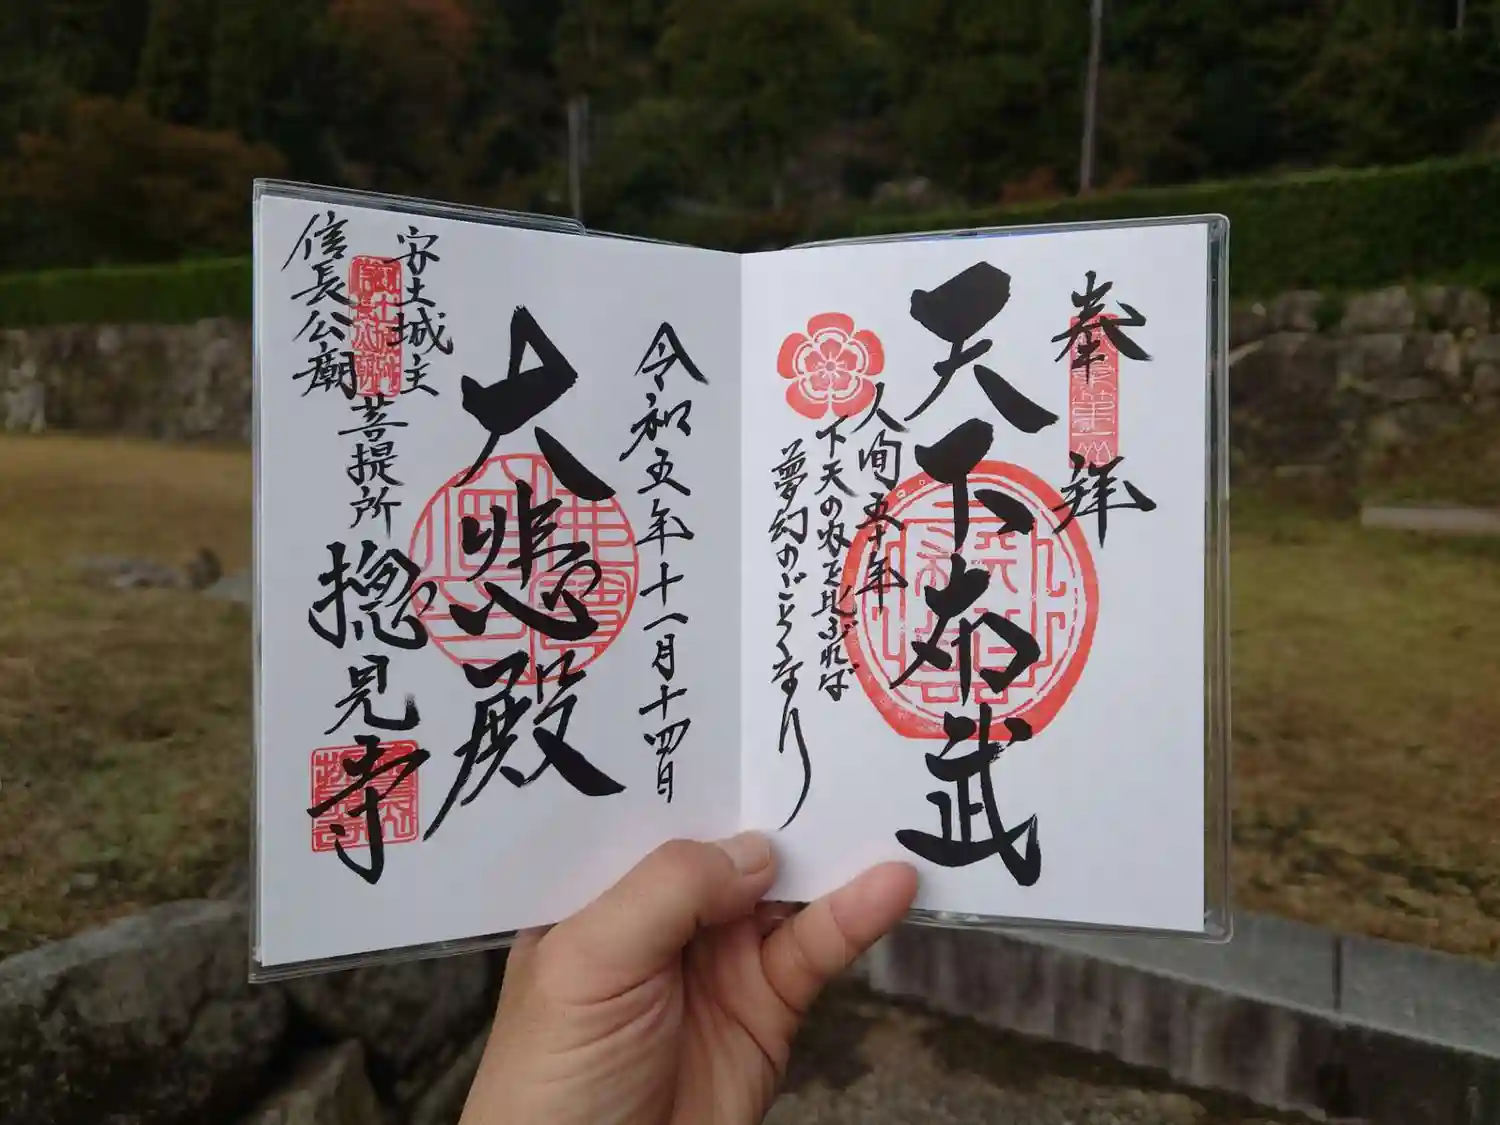 奉拝
天下布武
人間五十年
下天の内を比ぶれば
夢幻のごとくなり
令和五年十一月十四日
大悲殿
安土城主
信長公廟
菩提所
摠見寺